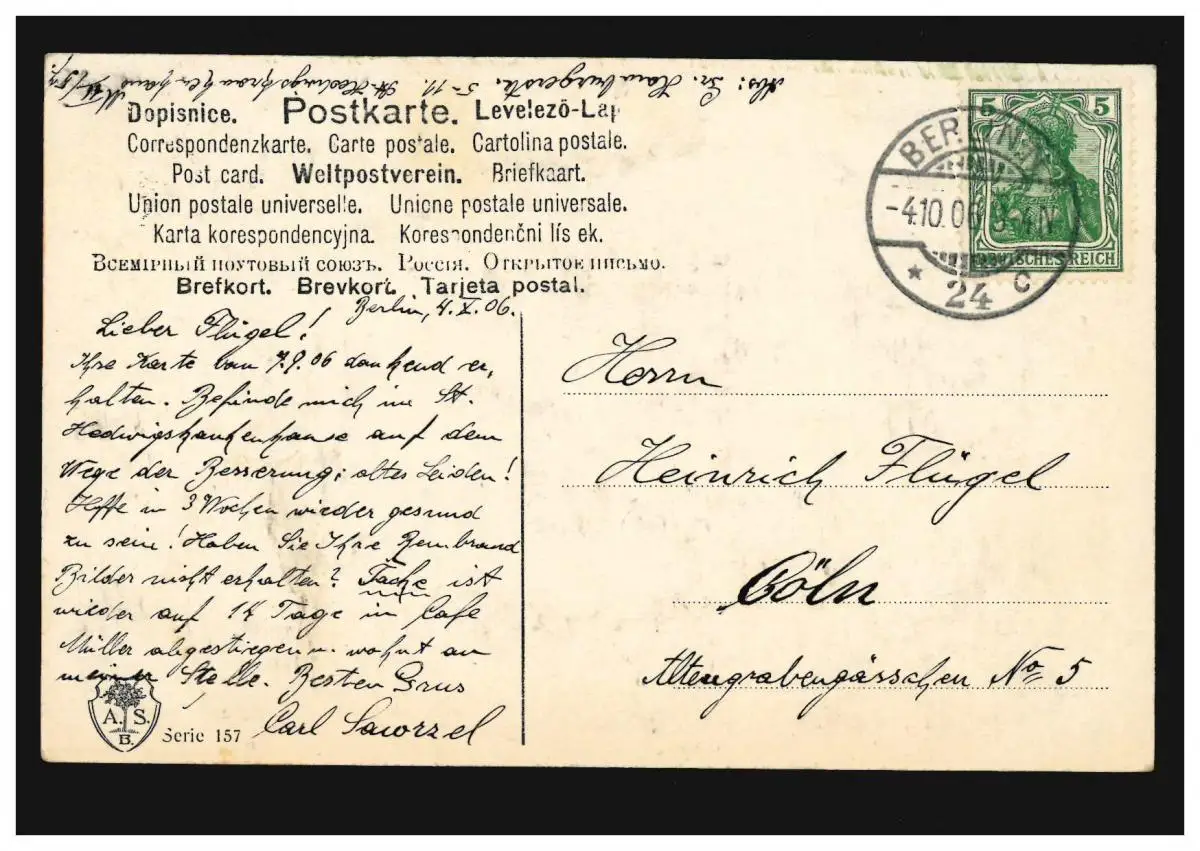 Abs: Gr. Hamburgerstr. 5-11. St. Hedwigskrankenhaus
Dopisnice. Postkarte. Levelező-Lap
Correspondenzkarte. Carte postale. Cartolina postale.
Post card. Weltpostverein. Briefkaart.
Union postale universelle. Unione postale universale.
Karta korespondencyjna. Korespondenční lís ek.
Всемірный почтовый союзъ. Россія. Открытое письмо.
Brefkort. Brevkort. Tarjeta postal.
5 5
DEUTSCHES REICH
BERLIN N.
-4.10.06
24 C
Berlin, 4. X. 06.
Lieber Flügel!
Ihre Karte vom 7.9.06 dankend er,
halten. Befinde mich im St.
Hedwigskrankenhause auf dem
Wege der Besserung; altes Leiden!
Hoffe in 3 Wochen wieder gesund
zu sein! Haben Sie Ihre Rembrand
Bilder nicht erhalten? ist
wieder auf 14 Tage in Cafe
Müller abgestiegen u. wohnt an
meiner Stelle. Besten Grus
Carl Sawrzel
A. S.
B.
Serie 157
Herrn
Heinrich Flügel
Cöln
Altengrabengässchen No 5